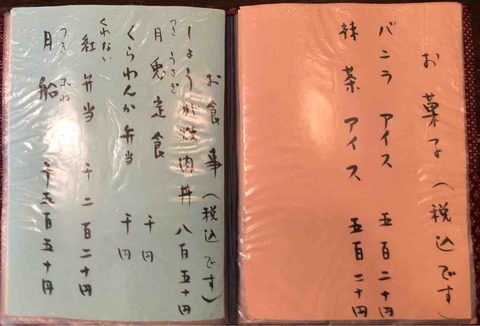 お菓子（税込です）
バニラ アイス 五百二十円
抹茶 アイス 五百二十円
お食事（税込です）
しょうが焼肉丼 八百五十円
つき うさぎ
月兎定食 千円
くらわんか弁当 千円
くれない
紅弁当 千二百二十円
つき ふね
月船 千五百五十円